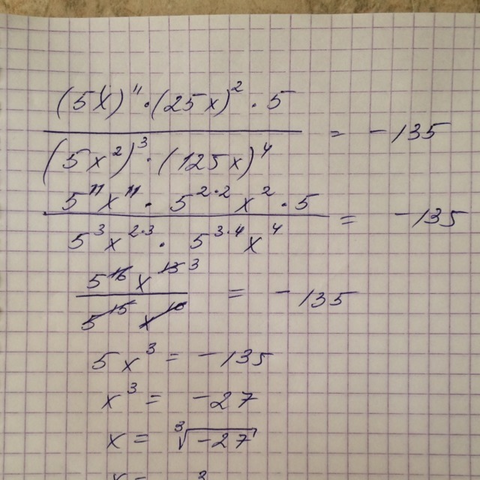 (5x)¹¹ · (25x)² · 5
(5x²)³ · (125x)⁴ = -135
5¹¹x¹¹ · 5²·²x² · 5
5³x²·³ · 5³·⁴x⁴ = -135
5¹⁶x¹³ ³
5¹⁵x¹⁰ = -135
5x³ = -135
x³ = -27
x = ³√-27